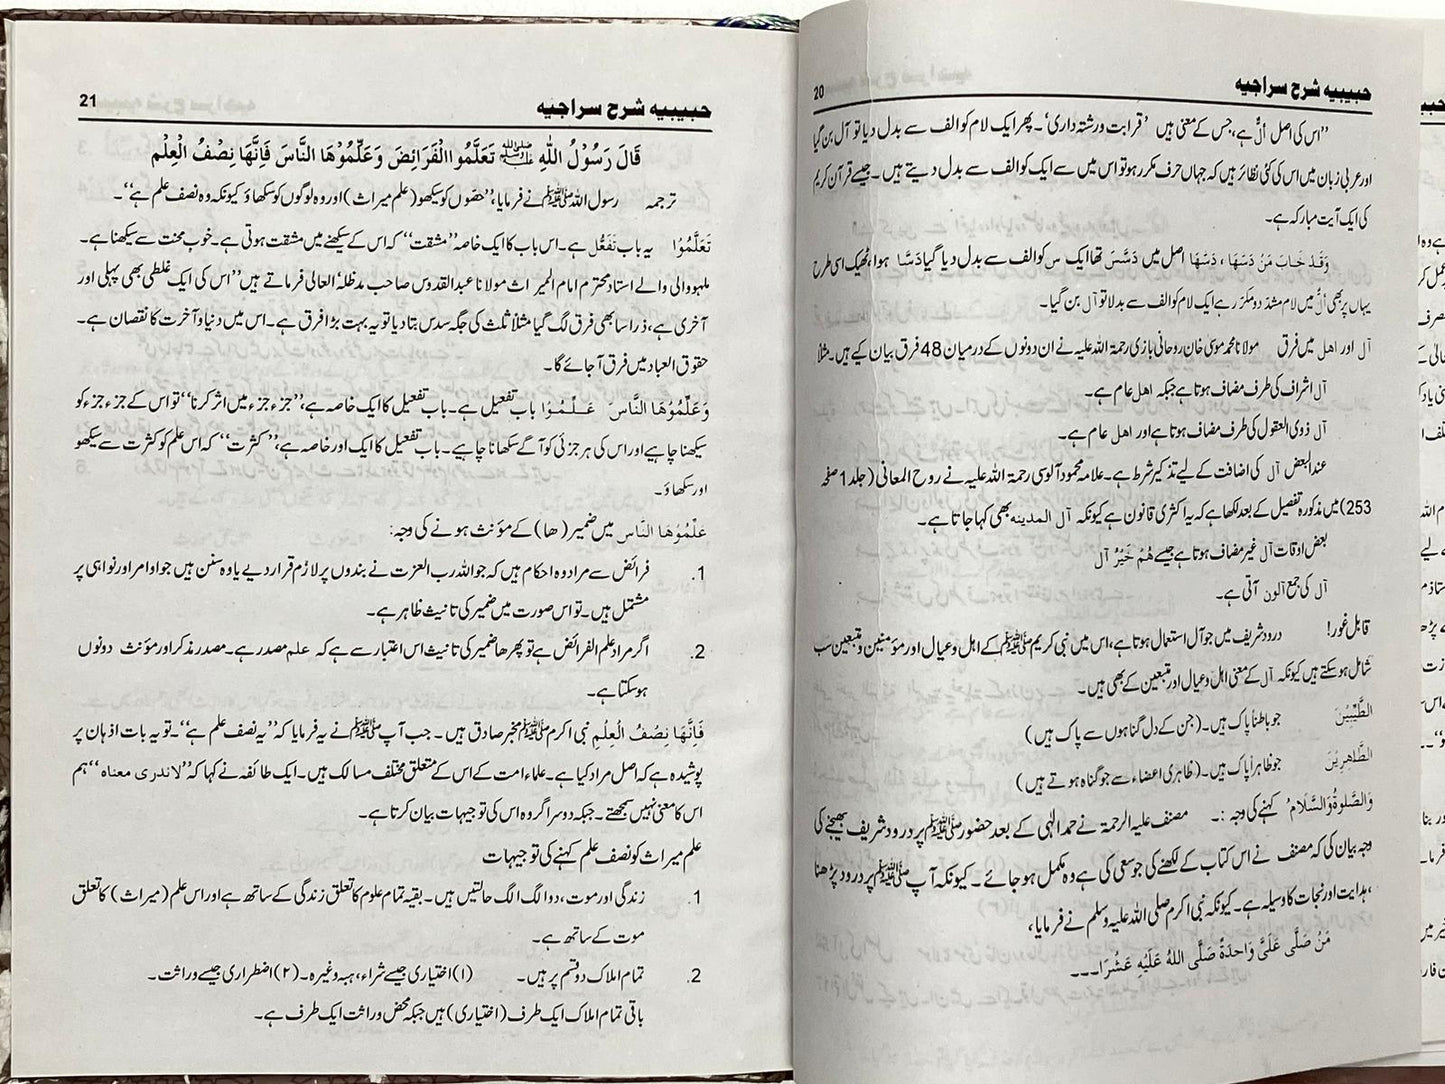 حبیبیہ شرح سراجیہ 20
"اس کی اصل اُلٌ ہے، جس کے معنی ہیں 'قرابت و رشتہ داری'۔ پھر ایک لام کو الف سے بدل دیا تو آل بن گیا
اور عربی زبان میں اس کی کئی نظائر ہیں کہ جہاں حرف مکرر ہو تو اس میں سے ایک کو الف سے بدل دیتے ہیں۔ جیسے قرآن کریم
کی ایک آیت مبارکہ ہے۔
وَقَدْ خَابَ مَنْ دَسّٰهَا ، دَسّٰهَا اصل میں دَسَّسَ تھا ایک س کو الف سے بدل دیا گیا دَسَّا ہوا، ٹھیک اسی طرح
یہاں پر بھی اُلٌ میں لام مشدد دو مکرر ہے ایک لام کو الف سے بدلا تو آل بن گیا۔
آل اور اهل میں فرق مولانا محمد موسیٰ خان روحانی بازی رحمۃ اللہ علیہ نے ان دونوں کے درمیان 48 فرق بیان کیے ہیں۔ مثلاً
آل اشراف کی طرف مضاف ہوتا ہے جبکہ اهل عام ہے۔
آل ذوی العقول کی طرف مضاف ہوتا ہے اور اهل عام ہے۔
عند البعض آل کی اضافت کے لیے تذکیر شرط ہے۔ علامہ محمود آلوسی رحمۃ اللہ علیہ نے روح المعانی (جلد 1 صفحہ
253) میں مذکورہ تفصیل کے بعد لکھا ہے کہ یہ اکثری قانون ہے کیونکہ آل المدینه بھی کہا جاتا ہے۔
بعض اوقات آل غیر مضاف ہوتا ہے جیسے هُمْ خَيْرُ آلٍ
آل کی جمع آلون آتی ہے۔
قابل غور! درود شریف میں جو آل استعمال ہوتا ہے، اس میں نبی کریم ﷺ کے اہل و عیال اور مؤمنین و متبعین سب
شامل ہو سکتے ہیں کیونکہ آل کے معنی اہل و عیال اور متبعین کے بھی ہیں۔
الطَّيِّبِيْنَ جو باطناً پاک ہیں۔ (جن کے دل گناہوں سے پاک ہیں)
الطَّاهِرِيْنَ جو ظاہراً پاک ہیں۔ (ظاہری اعضاء سے جو گناہ ہوتے ہیں)
وَالصَّلٰوةُ وَالسَّلَامُ کہنے کی وجہ :۔ مصنف علیہ الرحمۃ نے حمد الٰہی کے بعد حضور ﷺ پر درود شریف بھیجنے کی
وجہ بیان کی کہ مصنف نے اس کتاب کے لکھنے کی جو سعی کی ہے وہ مکمل ہو جائے۔ کیونکہ آپ ﷺ پر درود پڑھنا
ہدایت اور نجات کا وسیلہ ہے۔ کیونکہ نبی اکرم صلی اللہ علیہ وسلم نے فرمایا،
مَنْ صَلَّى عَلَىَّ وَاحِدَةً صَلَّى اللهُ عَلَيْهِ عَشْرًا۔۔۔
حبیبیہ شرح سراجیہ 21
قَالَ رَسُوْلُ اللهِ ﷺ تَعَلَّمُوا الْفَرَائِضَ وَعَلِّمُوْهَا النَّاسَ فَاِنَّهَا نِصْفُ الْعِلْمِ
ترجمہ رسول اللہ ﷺ نے فرمایا، "حصّوں کو سیکھو (علم میراث) اور وہ لوگوں کو سکھاؤ کیونکہ وہ نصف علم ہے"۔
تَعَلَّمُوْا یہ باب تَفَعُّل ہے۔ اس باب کا ایک خاصہ "مشقت" کہ اس کے سیکھنے میں مشقت ہوتی ہے۔ خوب محنت سے سیکھنا ہے۔
ملہووالی والے استاد محترم امام المیراث مولانا عبدالقدوس صاحب مدظلہٗ العالی فرماتے ہیں "اس کی ایک غلطی بھی پہلی اور
آخری ہے، ذرا سا بھی فرق لگ گیا مثلاً ثلث کی جگہ سدس بتا دیا تو یہ بہت بڑا فرق ہے۔ اس میں دنیا و آخرت کا نقصان ہے۔
حقوق العباد میں فرق آ جائے گا۔
وَعَلِّمُوْهَا النَّاسَ عَلِّمُوْا باب تفعیل ہے۔ باب تفعیل کا ایک خاصہ ہے، "جزء جزء میں اثر کرنا" تو اس کے جزء جزء کو
سیکھنا چاہیے اور اس کی ہر جزئی کو آگے سکھانا چاہیے۔ باب تفعیل کا ایک اور خاصہ ہے، "کثرت" کہ اس علم کو کثرت سے سیکھو
اور سکھاؤ۔
عَلِّمُوْهَا النَّاس میں ضمیر (ها) کے مؤنث ہونے کی وجہ:
1. فرائض سے مراد وہ احکام ہیں کہ جو اللہ رب العزت نے بندوں پر لازم قرار دیے یا وہ سنن ہیں جو اوامر اور نواہی پر
مشتمل ہیں۔ تو اس صورت میں ضمیر کی تانیث ظاہر ہے۔
2. اگر مراد علم الفرائض ہے تو پھر ها ضمیر کی تانیث اس اعتبار سے ہے کہ علم مصدر ہے۔ مصدر مذکر اور مؤنث دونوں
ہو سکتا ہے۔
فَاِنَّهَا نِصْفُ الْعِلْمِ نبی اکرم ﷺ مخبر صادق ہیں۔ جب آپ ﷺ نے یہ فرمایا کہ "یہ نصف علم ہے"۔ تو یہ بات اذہان پر
پوشیدہ ہے کہ اصل مراد کیا ہے۔ علماء امت کے اس کے متعلق مختلف مسالک ہیں۔ ایک طائفہ نے کہا کہ "لاندری معناہ" ہم
اس کا معنی نہیں سمجھتے۔ جبکہ دوسرا گروہ اس کی توجیہات بیان کرتا ہے۔
علم میراث کو نصف علم کہنے کی توجیہات
1. زندگی اور موت، دو الگ الگ حالتیں ہیں۔ بقیہ تمام علوم کا تعلق زندگی کے ساتھ ہے اور اس علم (میراث) کا تعلق
موت کے ساتھ ہے۔
2. تمام املاک دو قسم پر ہیں۔ (۱) اختیاری جیسے شراء، ہبہ وغیرہ۔ (۲) اضطراری جیسے وراثت۔
باقی تمام املاک ایک طرف (اختیاری) ہیں جبکہ محض وراثت ایک طرف ہے۔